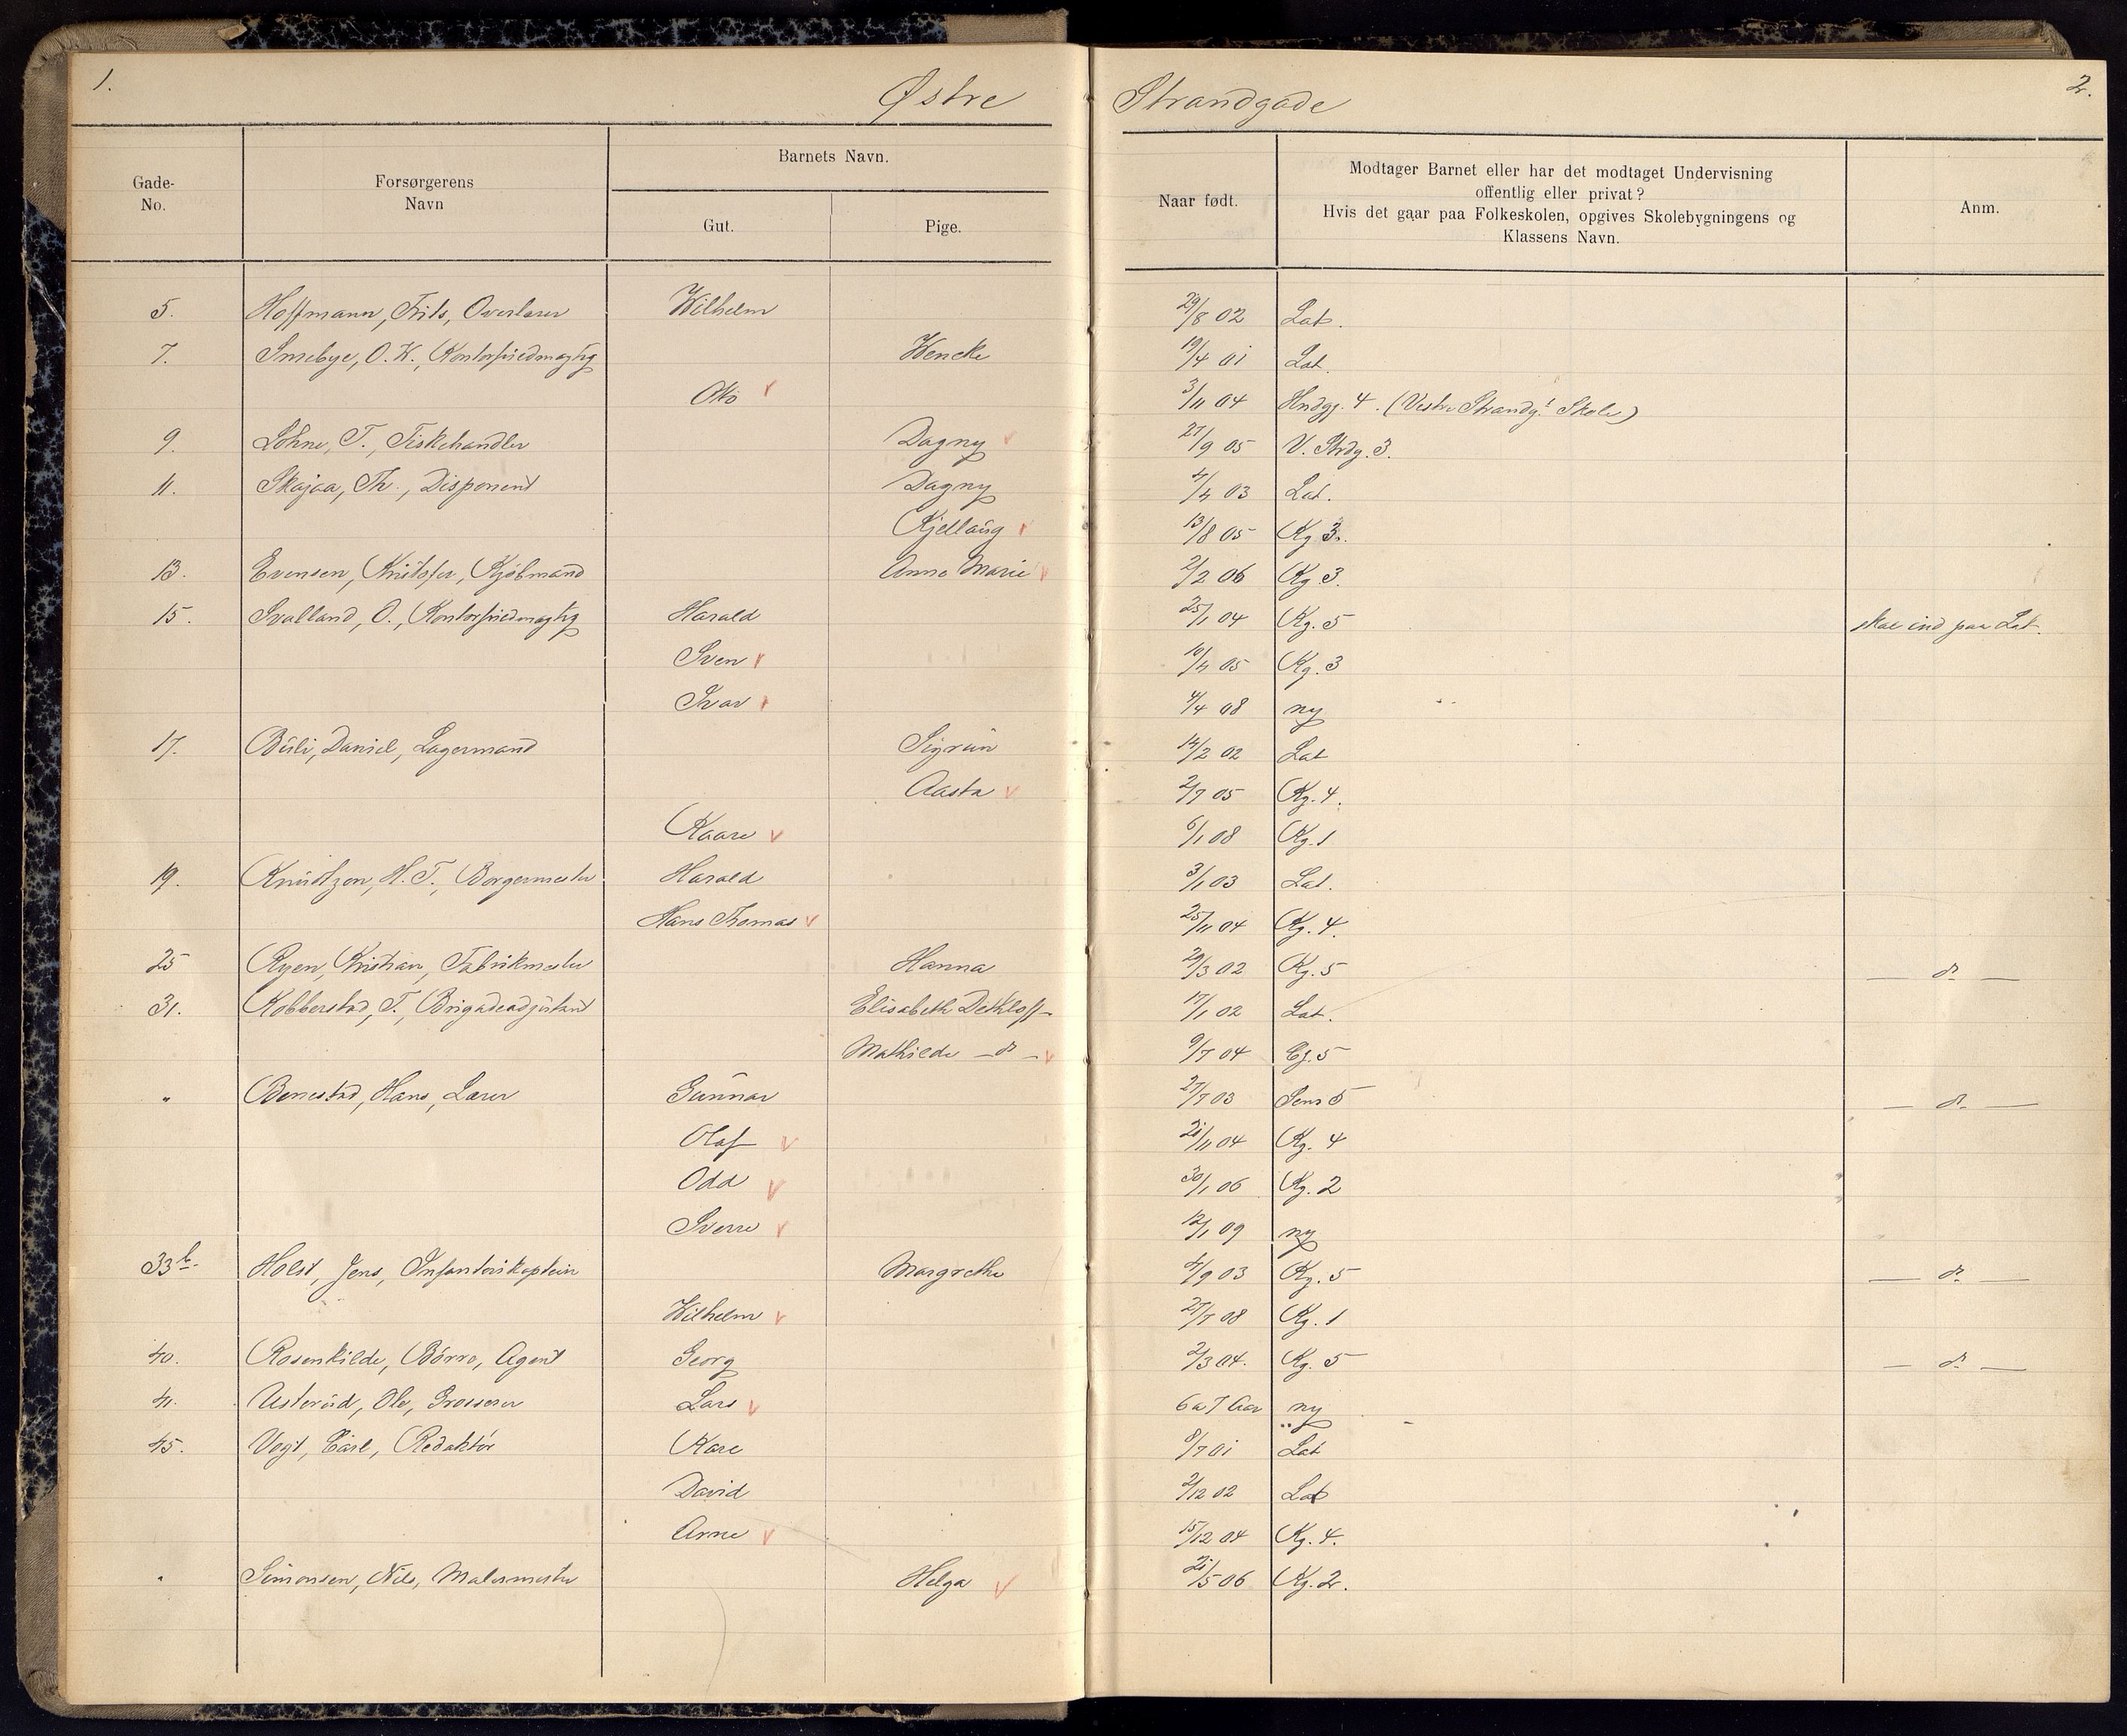 1.
Østre Strandgade
2.
Gade-No.
Forsørgerens Navn
Barnets Navn.
Gut.
Pige.
Naar født.
Modtager Barnet eller har det modtaget Undervisning
offentlig eller privat?
Hvis det gaar paa Folkeskolen, opgives Skolebygningens og
Klassens Navn.
Anm.
5. Hoffmann, Frits, Overlærer Wilhelm 29/8 02 Lat.
7. Smebye, O. K., Kontorfuldmægtig Wencke 19/4 01 Lat.
Otto v 3/11 04 Hndgs. 4. (Vestre Strandg.s Skole)
9. Lohne, T., Fiskehandler Dagny v 27/9 05 V. Strdg. 3.
11. Skajaa, Th., Disponent Dagny 4/4 03 Lat.
Kjellaug v 13/8 05 Kg 3.
13. Evensen, Kristofer, Kjøbmand Anne Marie v 2/2 06 Kg 3.
15. Svalland, O., Kontorfuldmægtig Harald 25/1 04 Kg. 5 skal ind paa Lat.
Sven v 10/4 05 Kg. 3
Ivar v 4/4 08 ny
17. Busli, Daniel, Lagermand Sigrun 14/2 02 Lat
Aasta v 2/7 05 Kg. 4.
Kaare v 6/1 08 Kg. 1
19. Knudtzon, H. T., Borgermester Harald 3/1 03 Lat.
Hans Thomas v 25/11 04 Kg. 4.
25 Ryen, Kristian, Fabrikmester Hanna 29/3 02 Kg. 5 — do —
31. Kobberstad, T., Brigadeadjutant Elisabeth Dethloff 17/1 02 Lat.
Mathilde — do — v 9/7 04 Eg. 5
" Benestad, Hans, Lærer Gunnar 27/7 03 Sem 5 — do —
Olaf v 21/11 04 Kg. 4
Odd v 30/1 06 Kg. 2
Sverre v 12/1 09 ny
33 b. Holst, Jens, Infanterikaptein Margrethe 4/9 03 Kg. 5 — do —
Wilhelm v 27/7 08 Kg. 1
40. Rosenkilde, Børre, Agent Georg 2/3 04. Kg. 5 — do —
41. Usterud, Ole, Grosserer Lars v 6 a 7 Aar ny
45. Vogt, Carl, Redaktør Kare 8/7 01 Lat
David 2/12 02 Lat
Arne v 15/12 04 Kg. 4.
" Simonsen, Nils, Malermester Helga v 21/5 06 Kg. 2.